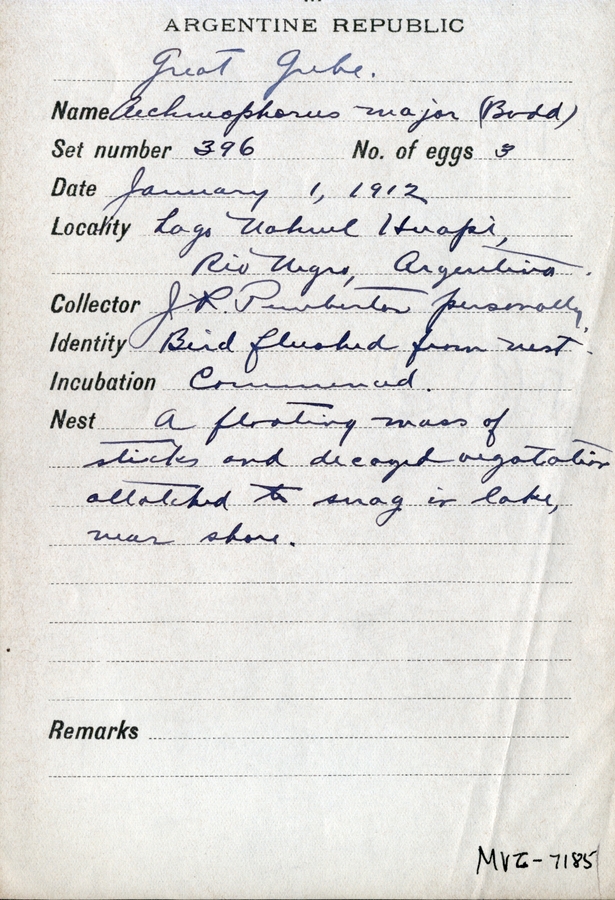 ARGENTINE REPUBLIC
Great Grebe.
Name Aechmophorus major (Bodd)
Set number 396 No. of eggs 3
Date January 1, 1912
Locality Lago Nahuel Huapi,
Rio Negro, Argentina.
Collector J. R. Pemberton personally.
Identity Bird flushed from nest.
Incubation Commenced.
Nest A floating mass of
sticks and decayed vegetation
attatched to snag in lake,
near shore.
Remarks
MVZ-7185